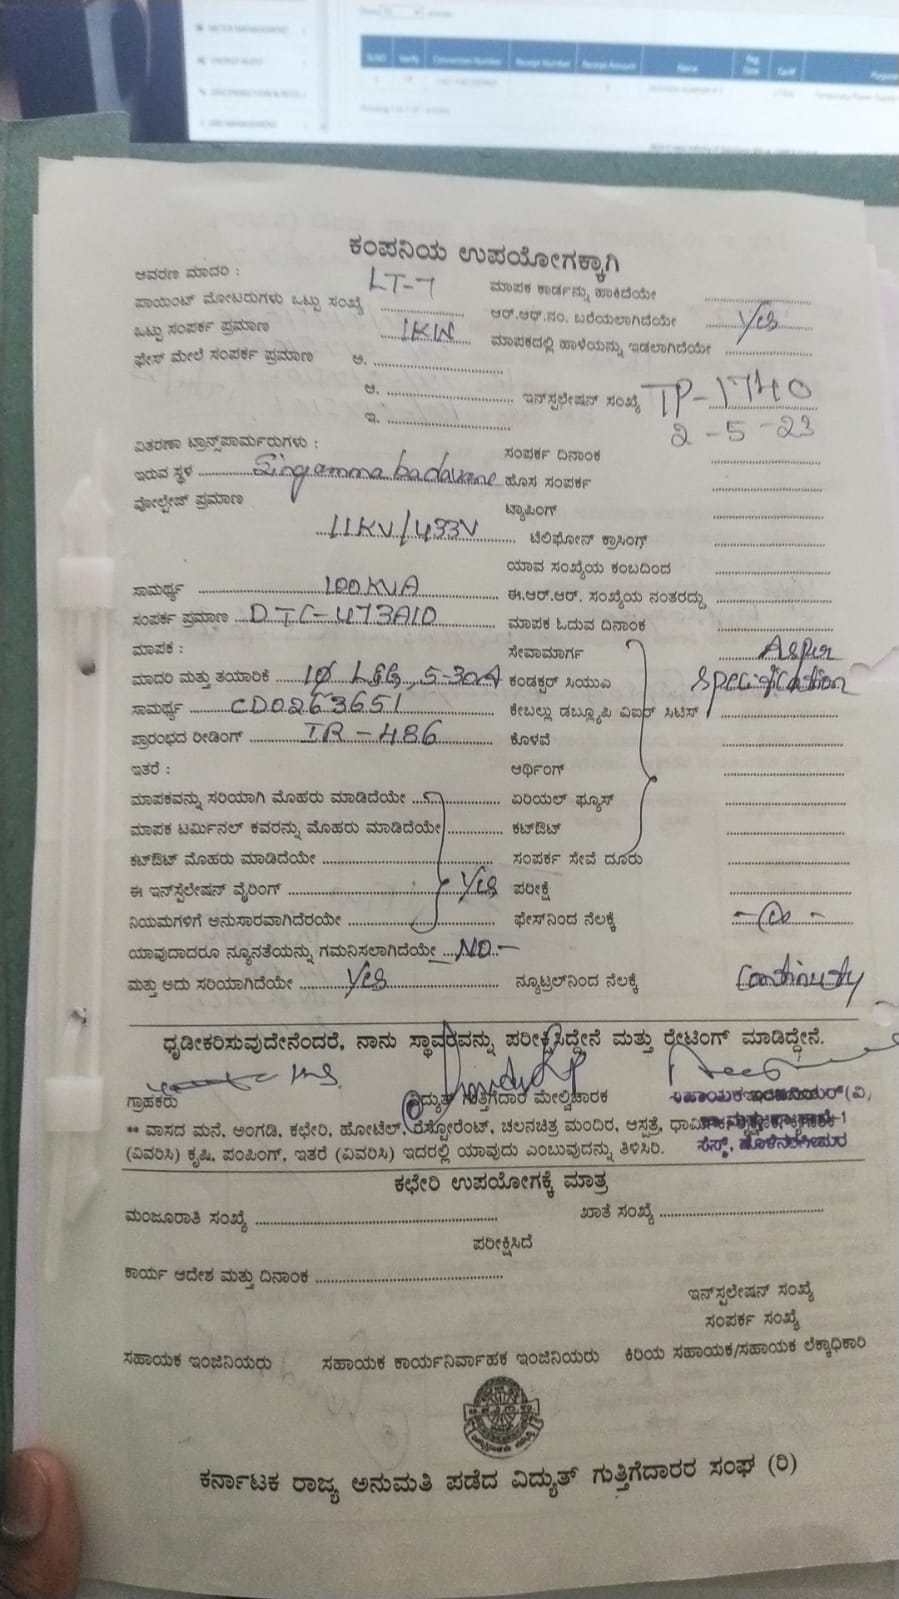 METER MANAGEMENT
ENERGY AUDIT
Connection Number Receipt Number Receipt Amount Name Reg Date Tariff Purpose
ಕಂಪನಿಯ ಉಪಯೋಗಕ್ಕಾಗಿ
ಆವರಣ ಮಾದರಿ : LT-7 ಮಾಪಕ ಕಾರ್ಡನ್ನು ಹಾಕಿದೆಯೇ
ಪಾಯಿಂಟ್ ಮೋಟರುಗಳು ಒಟ್ಟು ಸಂಖ್ಯೆ ಆರ್.ಆರ್.ನಂ. ಬರೆಯಲಾಗಿದೆಯೇ Yes
ಒಟ್ಟು ಸಂಪರ್ಕ ಪ್ರಮಾಣ 1KW ಮಾಪಕದಲ್ಲಿ ಹಾಳೆಯನ್ನು ಇಡಲಾಗಿದೆಯೇ
ಫೇಸ್ ಮೇಲೆ ಸಂಪರ್ಕ ಪ್ರಮಾಣ ಅ.
ಆ. ಇನ್‌ಸ್ಟಲೇಷನ್ ಸಂಖ್ಯೆ TP-1740
ಇ. 2-5-23
ವಿತರಣಾ ಟ್ರಾನ್ಸ್‌ಪಾರ್ಮರುಗಳು : ಸಂಪರ್ಕ ದಿನಾಂಕ
ಇರುವ ಸ್ಥಳ Lingamma badavane ಹೊಸ ಸಂಪರ್ಕ
ವೋಲ್ಟೇಜ್ ಪ್ರಮಾಣ ಟ್ಯಾಪಿಂಗ್
11KV/433V ಟೆಲಿಫೋನ್ ಕ್ರಾಸಿಂಗ್
ಯಾವ ಸಂಖ್ಯೆಯ ಕಂಬದಿಂದ
ಸಾಮರ್ಥ್ಯ 100KVA ಈ.ಆರ್.ಆರ್. ಸಂಖ್ಯೆಯ ನಂತರದ್ದು
ಸಂಪರ್ಕ ಪ್ರಮಾಣ DTC-473A10 ಮಾಪಕ ಓದುವ ದಿನಾಂಕ
ಮಾಪಕ : ಸೇವಾಮಾರ್ಗ Asper
ಮಾದರಿ ಮತ್ತು ತಯಾರಿಕೆ 1Ø L&G, 5-30A ಕಂಡಕ್ಟರ್ ಸಿಯುಎ Specification
ಸಾಮರ್ಥ್ಯ CD0263651 ಕೇಬಲ್ಲು ಡಬ್ಲ್ಯೂಪಿ ವಿಐಆರ್ ಸಿಟಿಸ್
ಪ್ರಾರಂಭದ ರೀಡಿಂಗ್ IR-486 ಕೊಳವೆ
ಇತರೆ : ಆರ್ಥಿಂಗ್
ಮಾಪಕವನ್ನು ಸರಿಯಾಗಿ ಮೊಹರು ಮಾಡಿದೆಯೇ ಏರಿಯಲ್ ಫ್ಯೂಸ್
ಮಾಪಕ ಟರ್ಮಿನಲ್ ಕವರನ್ನು ಮೊಹರು ಮಾಡಿದೆಯೇ ಕಟ್‌ಔಟ್
ಕಟ್‌ಔಟ್ ಮೊಹರು ಮಾಡಿದೆಯೇ ಸಂಪರ್ಕ ಸೇವೆ ದೂರು
ಈ ಇನ್‌ಸ್ಟೆಲೇಷನ್ ವೈರಿಂಗ್ Yes ಪರೀಕ್ಷೆ
ನಿಯಮಗಳಿಗೆ ಅನುಸಾರವಾಗಿದೆರಯೇ ಫೇಸ್‌ನಿಂದ ನೆಲಕ್ಕೆ
ಯಾವುದಾದರೂ ನ್ಯೂನತೆಯನ್ನು ಗಮನಿಸಲಾಗಿದೆಯೇ NO
ಮತ್ತು ಅದು ಸರಿಯಾಗಿದೆಯೇ Yes ನ್ಯೂಟ್ರಲ್‌ನಿಂದ ನೆಲಕ್ಕೆ Continuty
ಧೃಡೀಕರಿಸುವುದೇನೆಂದರೆ, ನಾನು ಸ್ಥಾವರವನ್ನು ಪರೀಕ್ಷಿಸಿದ್ದೇನೆ ಮತ್ತು ರೇಟಿಂಗ್ ಮಾಡಿದ್ದೇನೆ.
ಗ್ರಾಹಕರು ವಿದ್ಯುತ್ ಗುತ್ತಿಗೆದಾರ ಮೇಲ್ವಿಚಾರಕ
** ವಾಸದ ಮನೆ, ಅಂಗಡಿ, ಕಛೇರಿ, ಹೋಟೆಲ್, ರೆಸ್ಟೋರೆಂಟ್, ಚಲನಚಿತ್ರ ಮಂದಿರ, ಆಸ್ಪತ್ರೆ,
(ವಿವರಿಸಿ) ಕೃಷಿ, ಪಂಪಿಂಗ್, ಇತರೆ (ವಿವರಿಸಿ) ಇದರಲ್ಲಿ ಯಾವುದು ಎಂಬುವುದನ್ನು ತಿಳಿಸಿರಿ.
ಕಛೇರಿ ಉಪಯೋಗಕ್ಕೆ ಮಾತ್ರ
ಮಂಜೂರಾತಿ ಸಂಖ್ಯೆ ಖಾತೆ ಸಂಖ್ಯೆ
ಪರೀಕ್ಷಿಸಿದೆ
ಕಾರ್ಯ ಆದೇಶ ಮತ್ತು ದಿನಾಂಕ
ಇನ್‌ಸ್ಟಲೇಷನ್ ಸಂಖ್ಯೆ
ಸಂಪರ್ಕ ಸಂಖ್ಯೆ
ಸಹಾಯಕ ಇಂಜಿನಿಯರು ಸಹಾಯಕ ಕಾರ್ಯನಿರ್ವಾಹಕ ಇಂಜಿನಿಯರು ಕಿರಿಯ ಸಹಾಯಕ/ಸಹಾಯಕ ಲೆಕ್ಕಾಧಿಕಾರಿ
ಕರ್ನಾಟಕ ರಾಜ್ಯ ಅನುಮತಿ ಪಡೆದ ವಿದ್ಯುತ್ ಗುತ್ತಿಗೆದಾರರ ಸಂಘ (ರಿ)